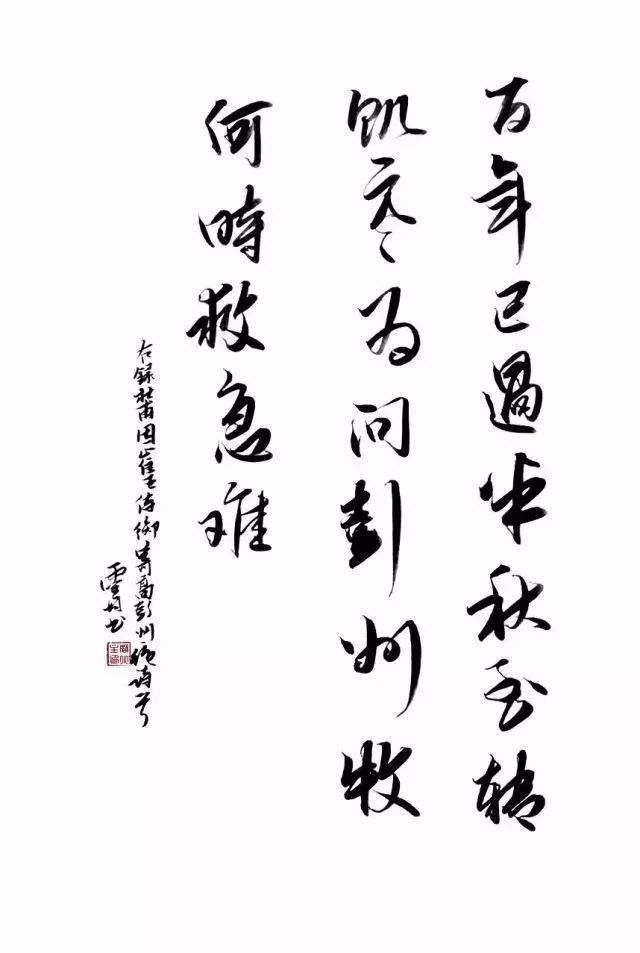 百年已過半秋至轉
飢寒為问彭州牧
何時救急难
右録杜甫因崔五侍御寄高彭州絶诗一首
雲丹书